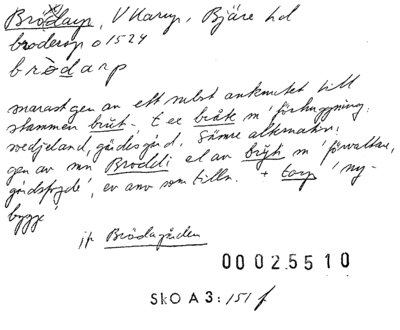 Brödarp, V Karup, Bjäre hd
broderop o 1524
brödarp
snarast gen av ett subst anknutet till
stammen brut- t ex bråte m 'förhuggning,
svedjeland, gärdesgård. Sämre alternativ:
gen av mn Broddi el av bryti m 'förvaltare,
gårdsfogde', ev anv som tilln. + torp 'ny-
bygge'
jfr Brödagården
00 02.55 10
SkO A 3: 151 f